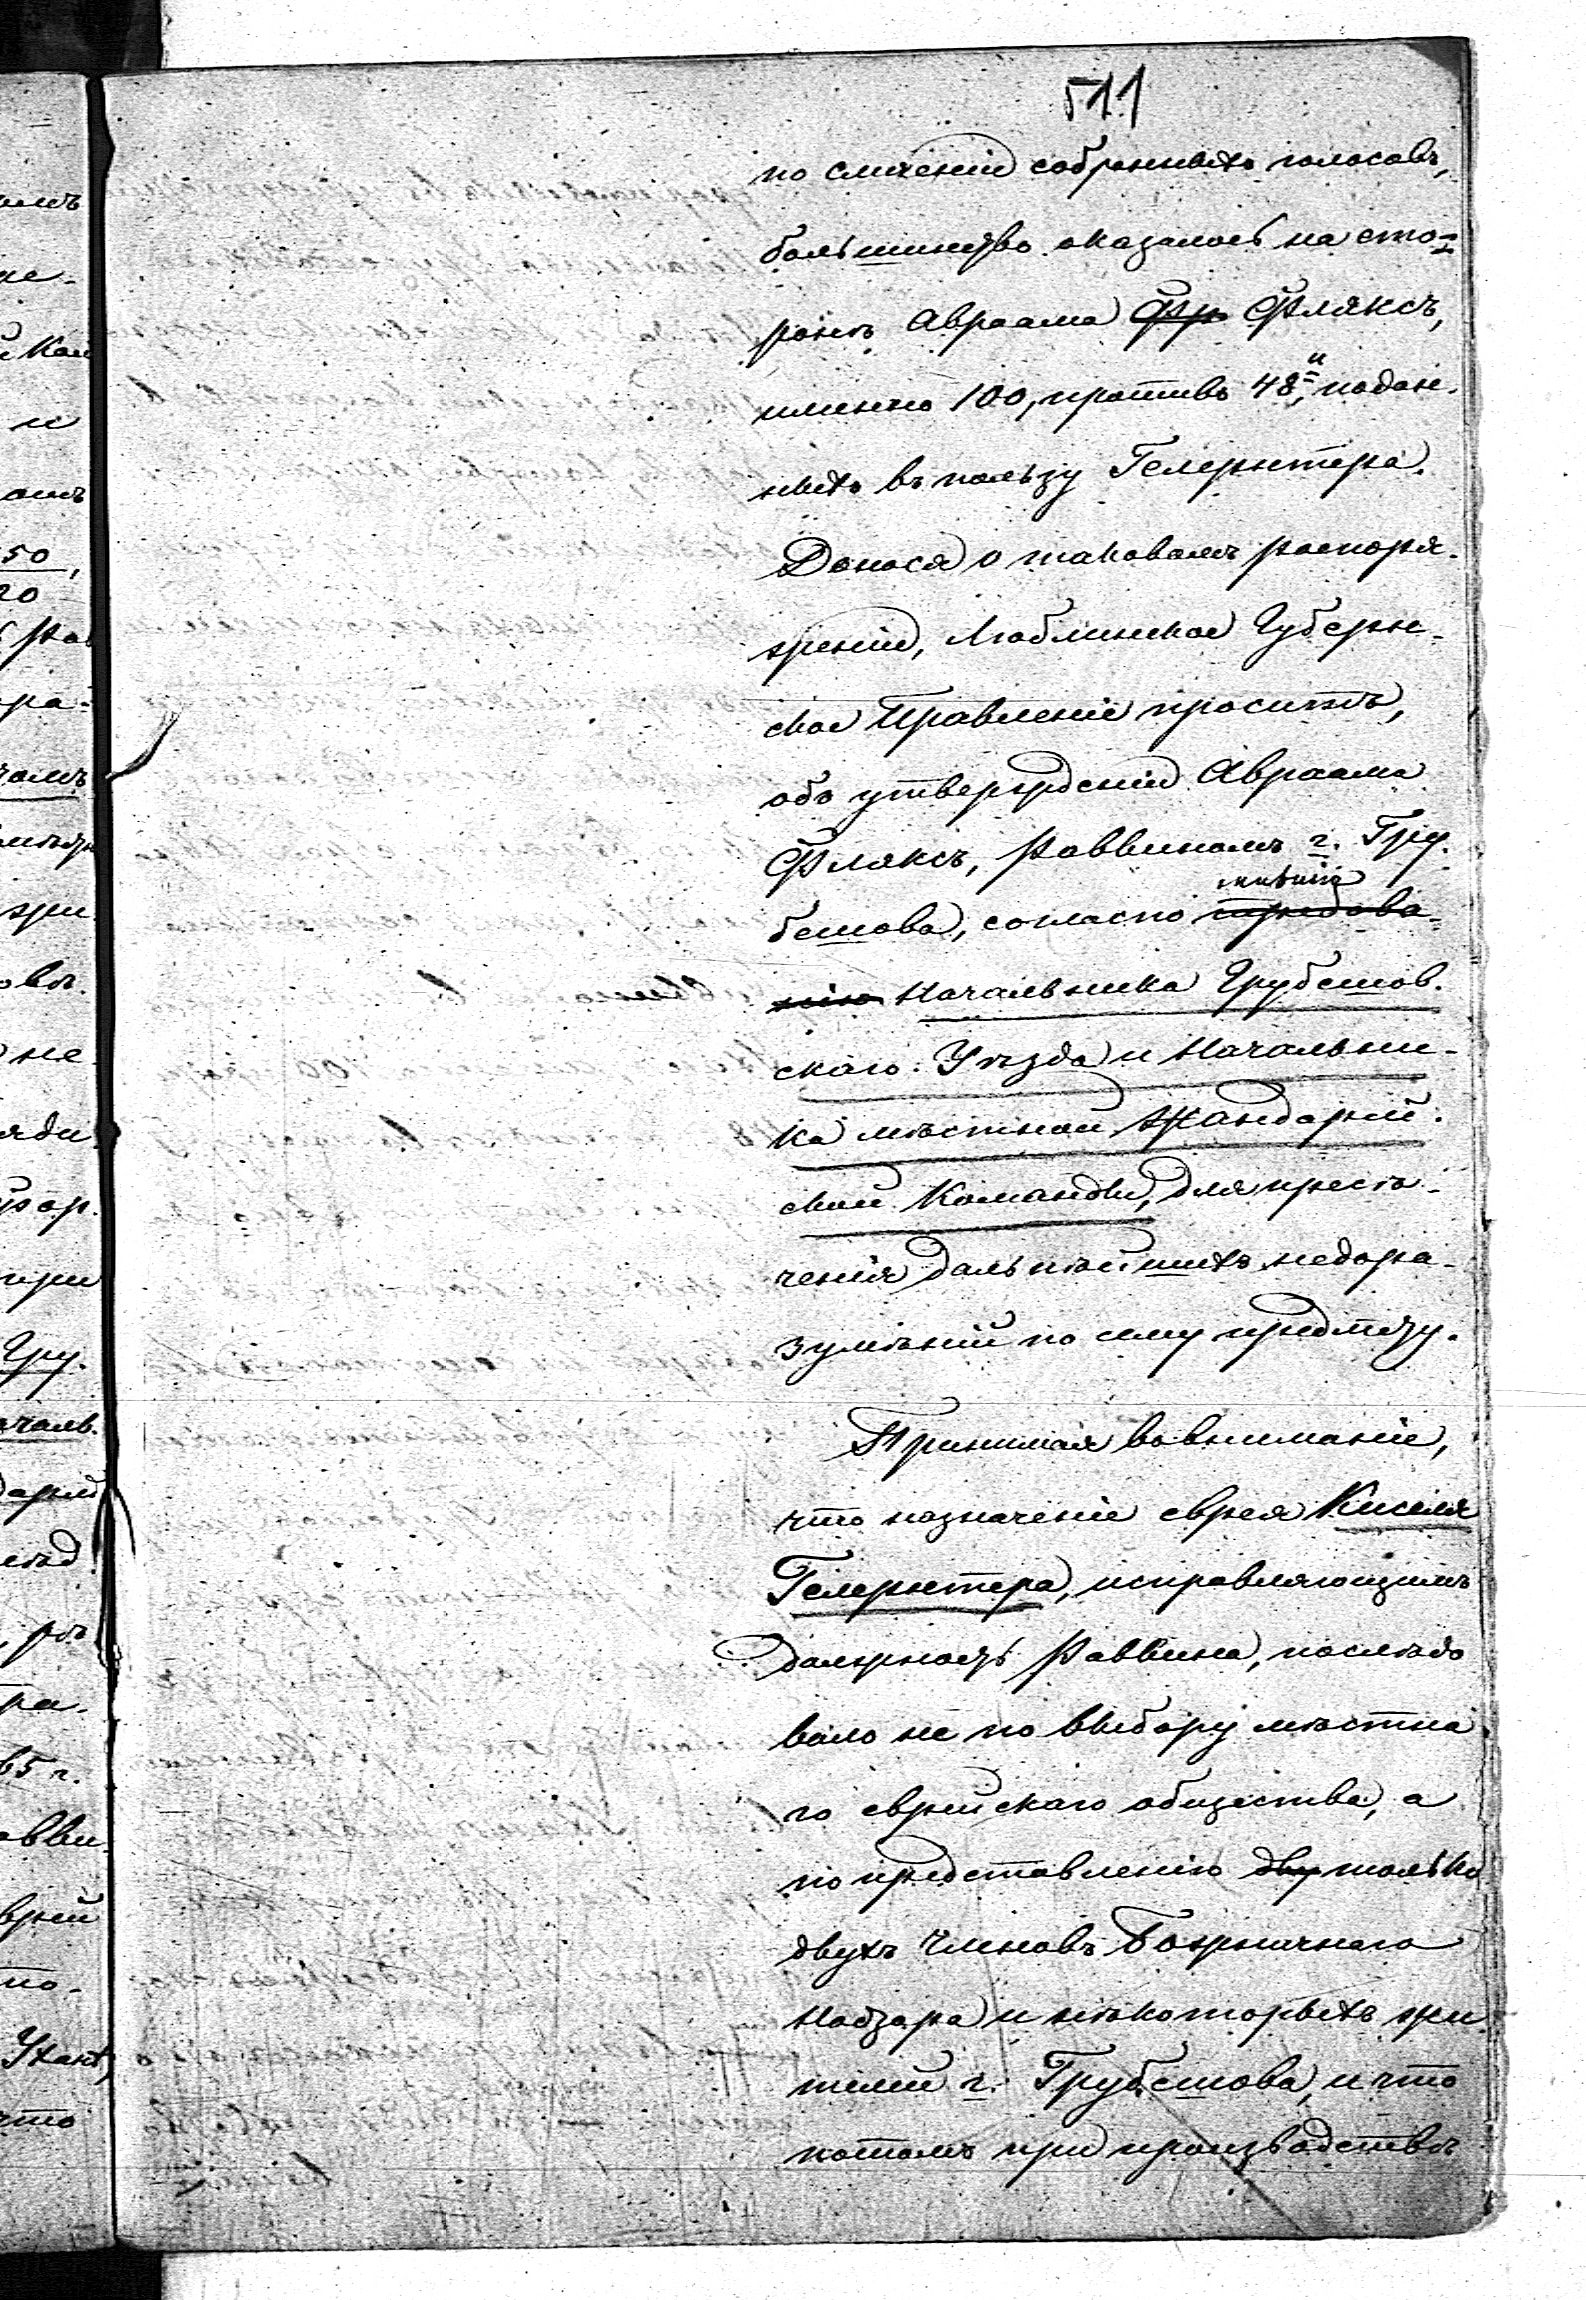 511
по сличеніи собранныхъ голосовъ,
большинство оказалось на сто=
ронѣ Авраама Фр Фляксъ,
именно 100, противъ 48и, подан-
ныхъ въ пользу Гелернтера.
Донося о таковомъ распоря-
женіи, Люблинское Губерн-
ское Правленіе проситъ,
объ утвержденіи Авраама
Фляксъ, Раввиномъ г. Гру-
мнѣнію
бешова, согласно требова-
нію Начальника Грубешов-
скаго Уѣзда и Начальни-
ка мѣстной Жандарм-
ской Команды, для пресѣ-
ченія дальнѣйшихъ недора-
зумѣній по сему предмету.
Принимая во вниманіе,
что назначеніе еврея Киселя
Гелернтера, исправляющимъ
должность Раввина, послѣдо
вало не по выбору мѣстна
го еврейскаго общества, а
по представленію дву только
двухъ Членовъ Божничнаго
Надзора и нѣкоторыхъ жи
телей г. Грубешова, и что
потомъ при производствѣ
омъ
не-
Кал
и
омъ
50,
20
ра-
жи
овъ.
не-
яди
при
Гру-
чаль-
ра-
65 г.
авви-
врей
по-
что